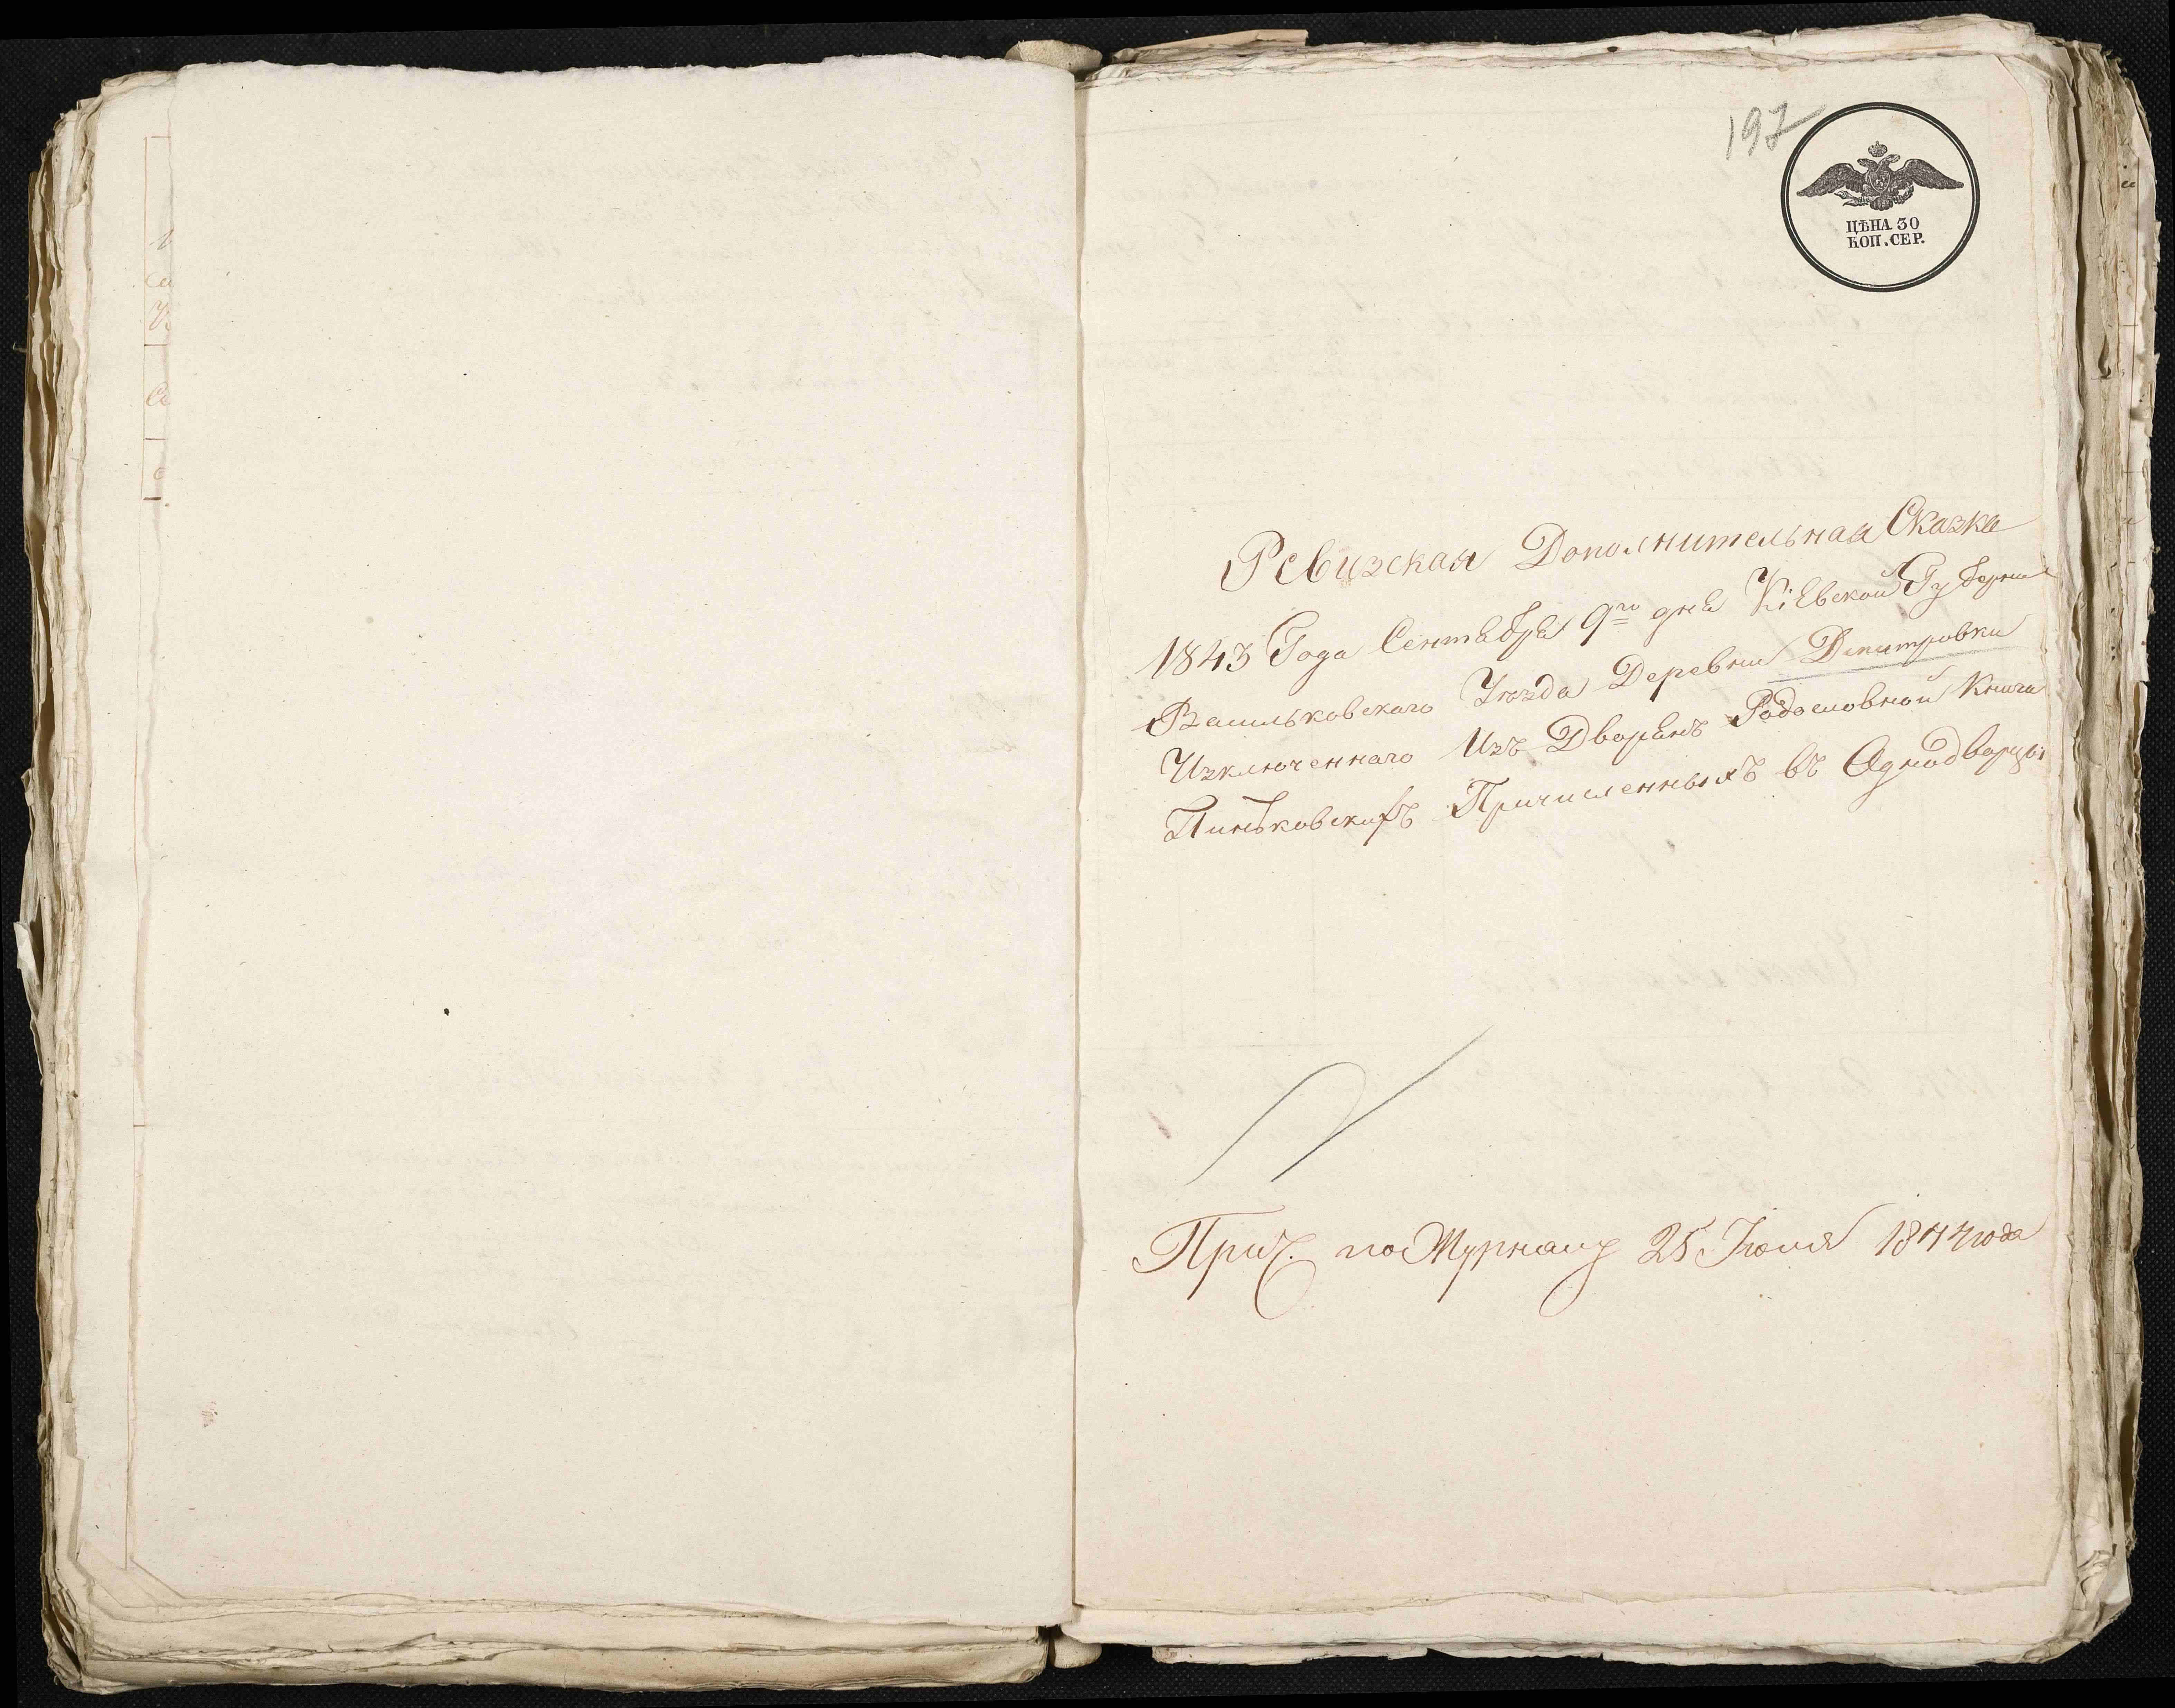 197
ЦѢНА 30
КОП. СЕР.
Ревизская Дополнительная Сказка
1843 Года Сентября 9го дня Кіевской Губерніи
Васильковскаго Уѣзда Деревни Дмитровки
Изключеннаго Изъ Дворянъ Родословной Книги
Пиньковскихъ Причисленныхъ въ Однодворцы
Прич. по Журналу 25 Іюля 1844 года